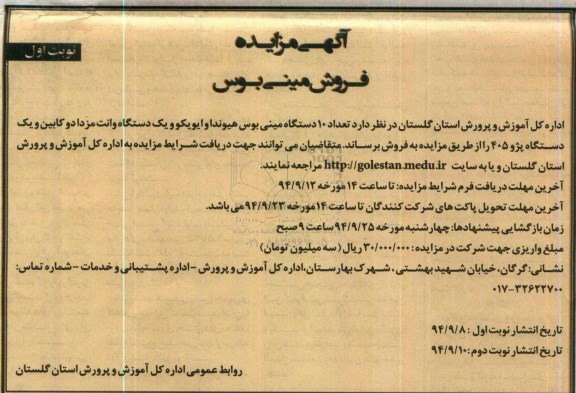 آگهی مزایده
نوبت اول
فروش مینی بوس
اداره کل آموزش و پرورش استان گلستان در نظر دارد تعداد ۱۰ دستگاه مینی بوس هیوندا و ایویکو و یک دستگاه وانت مزدا دو کابین و یک
دستگاه پژو ۴۰۵ را از طریق مزایده به فروش برساند. متقاضیان می توانند جهت دریافت شرایط مزایده به اداره کل آموزش و پرورش
استان گلستان و یا به سایت http://golestan.medu.ir مراجعه نمایند.
آخرین مهلت دریافت فرم شرایط مزایده: تا ساعت ۱۴ مورخه ۹۴/۹/۱۲
آخرین مهلت تحویل پاکت های شرکت کنندگان تا ساعت ۱۴ مورخه ۹۴/۹/۲۳ می باشد.
زمان بازگشایی پیشنهادها: چهارشنبه مورخه ۹۴/۹/۲۵ ساعت ۹ صبح
مبلغ واریزی جهت شرکت در مزایده: ۳۰/۰۰۰/۰۰۰ ریال (سه میلیون تومان)
نشانی: گرگان، خیابان شهید بهشتی، شهرک بهارستان، اداره کل آموزش و پرورش - اداره پشتیبانی و خدمات - شماره تماس:
۰۱۷-۳۲۶۲۲۷۰۰
تاریخ انتشار نوبت اول: ۹۴/۹/۸
تاریخ انتشار نوبت دوم: ۹۴/۹/۱۰
روابط عمومی اداره کل آموزش و پرورش استان گلستان